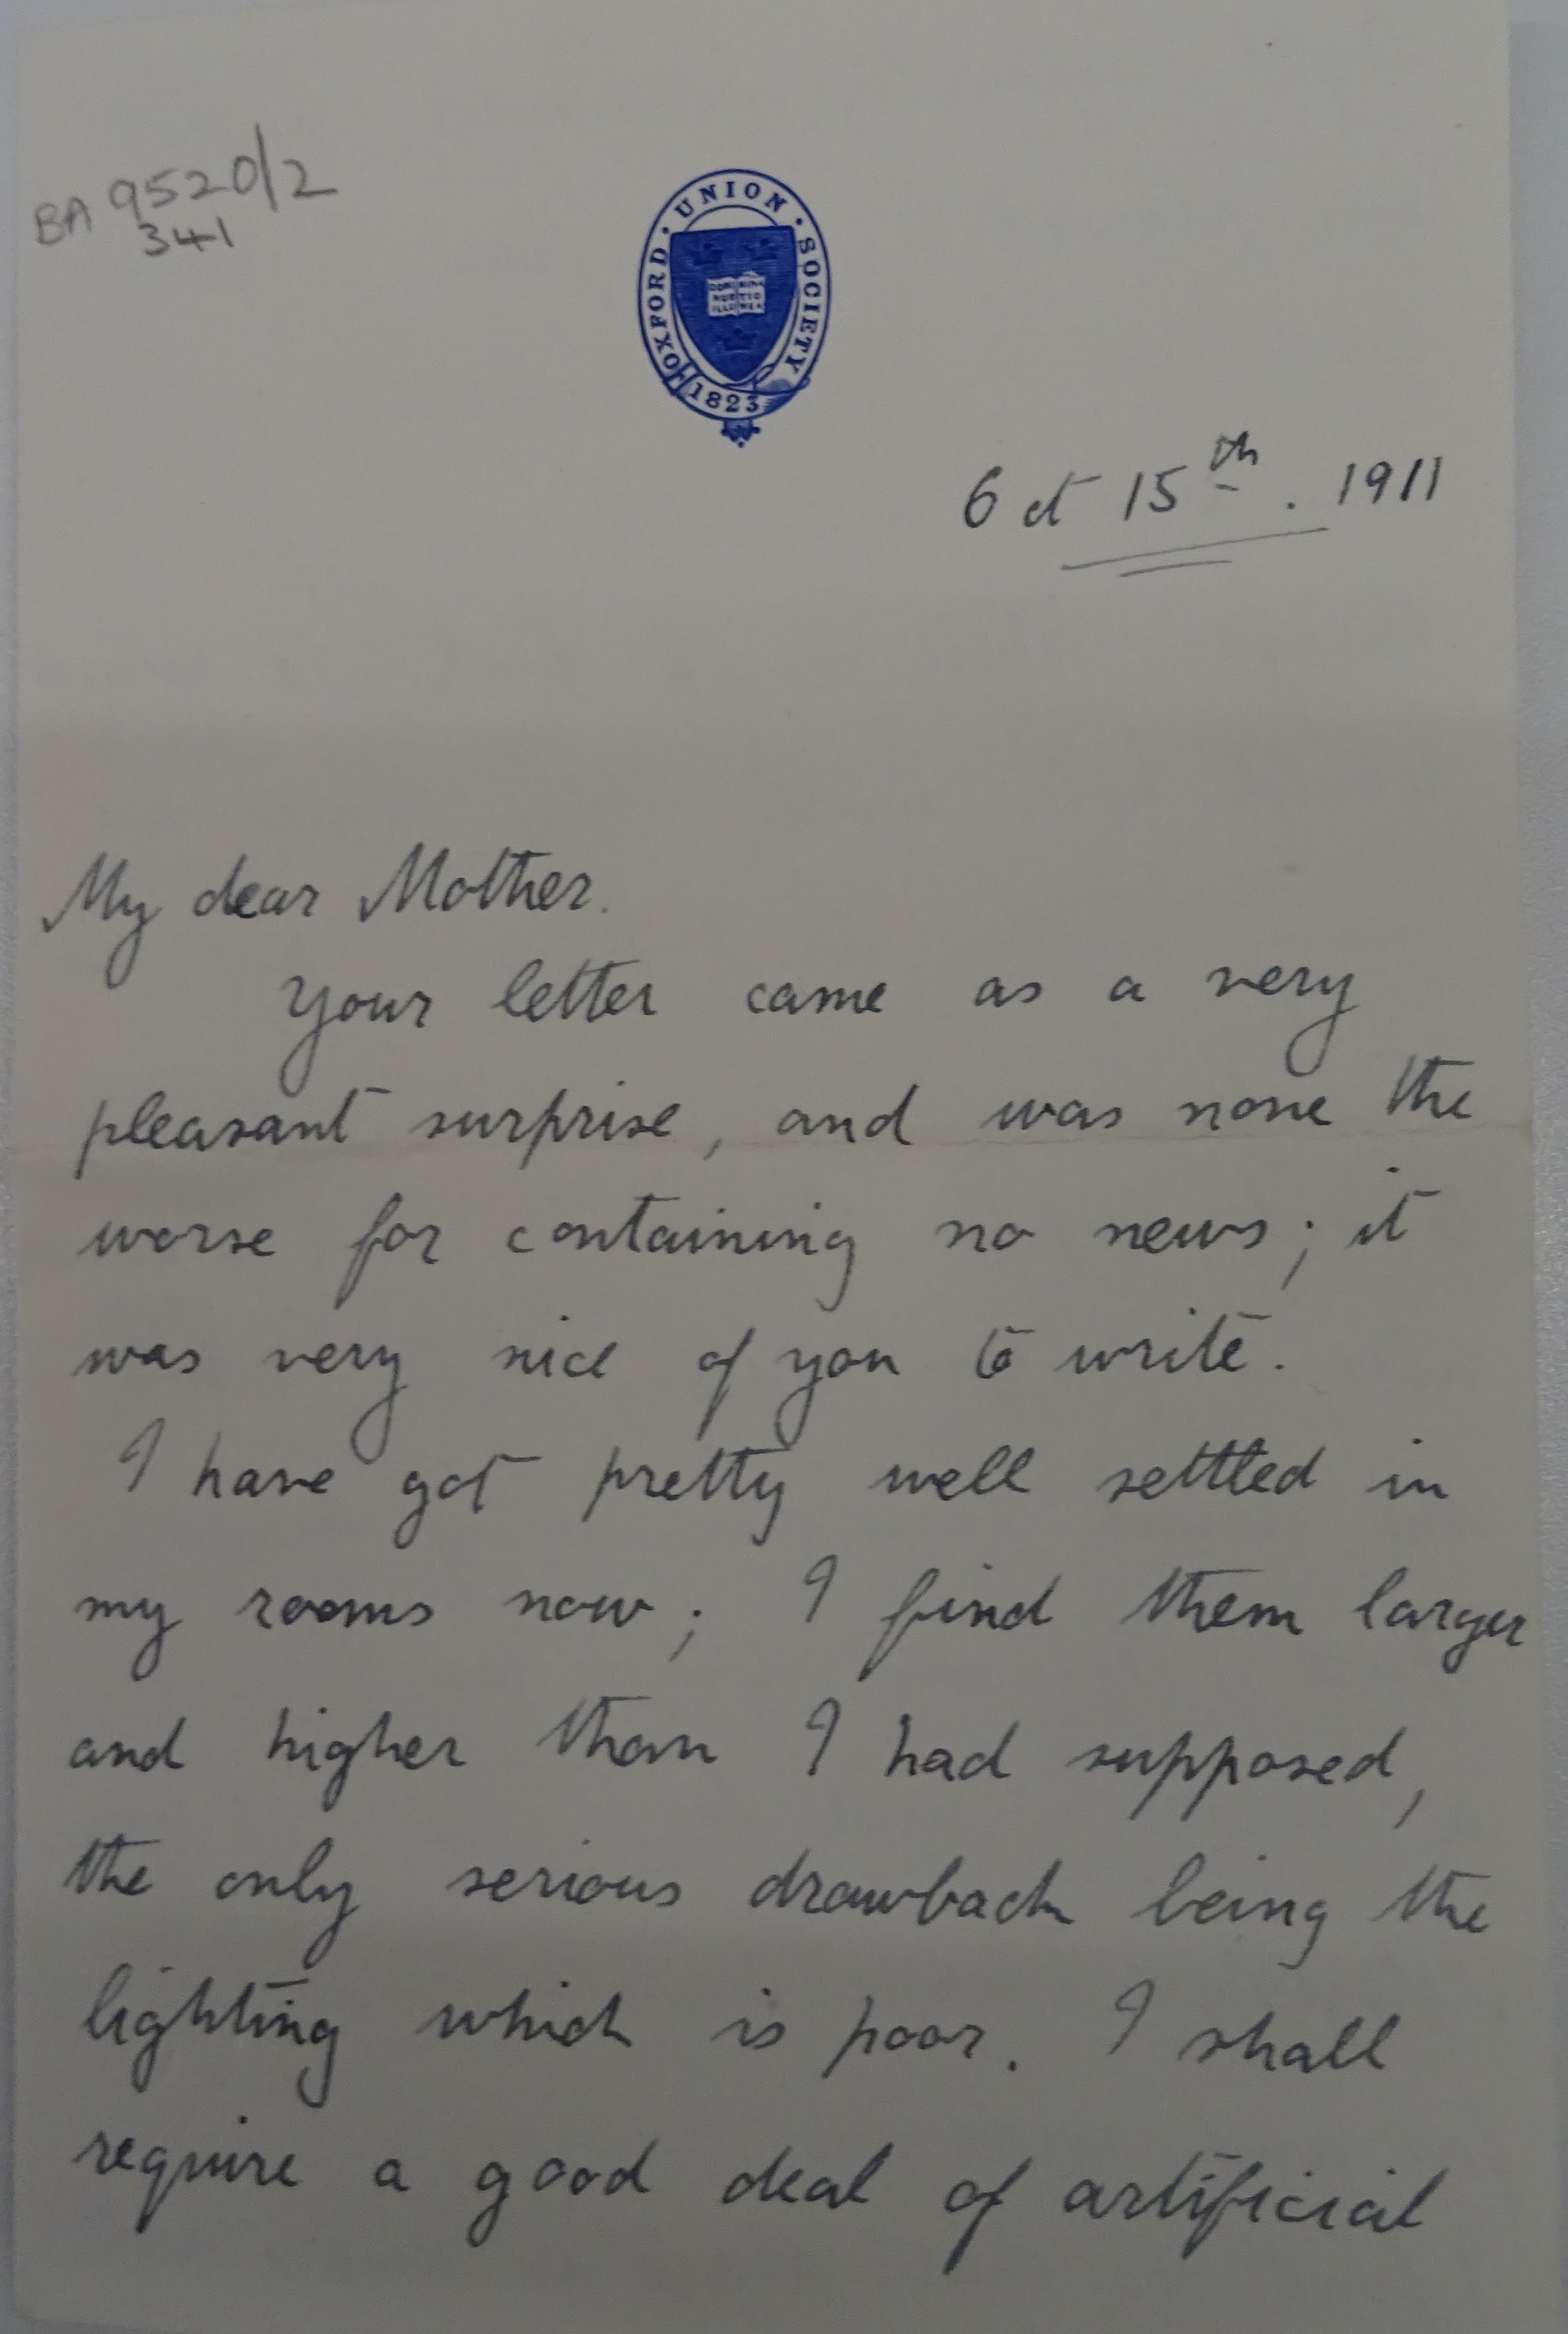 BA 9520/2
341
OXFORD · UNION · SOCIETY
DOMI MINA
NUS TIO
ILLU MEA
1823
Oct 15th. 1911
My dear Mother.
Your letter came as a very
pleasant surprise, and was none the
worse for containing no news; it
was very nice of you to write.
I have got pretty well settled in
my rooms now; I find them larger
and higher than I had supposed,
the only serious drawback being the
lighting which is poor. I shall
require a good deal of artificial